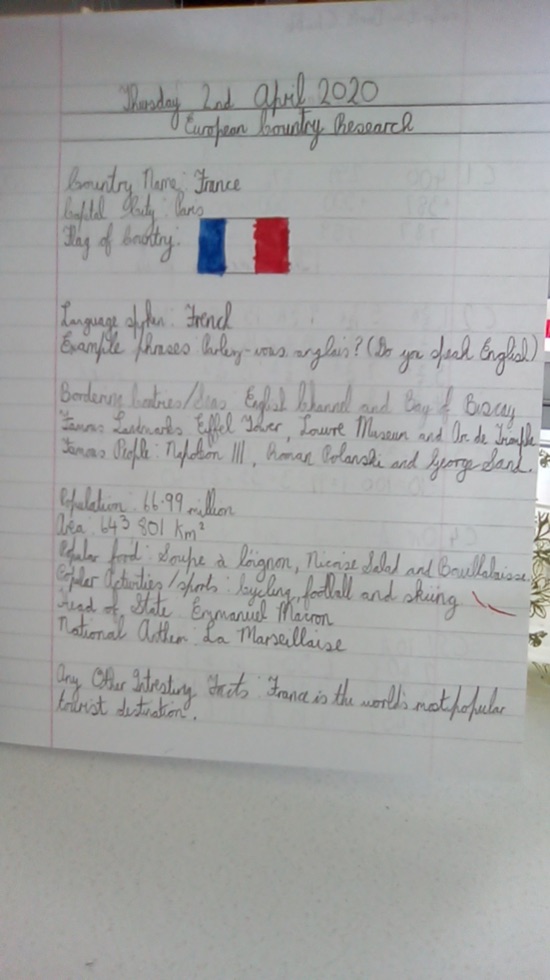 Thursday 2nd April 2020
European Country Research
Country Name: France
Capital City: Paris
Flag of Country:
Language spoken: French
Example phrases Parlez-vous anglais? (Do you speak English)
Bordering Countries/Seas English Channel and Bay of Biscay
Famous Landmarks Eiffel Tower, Louvre Museum and Arc de Triomphe
Famous People: Napoleon III, Roman Polanski and George Sand.
Population: 66.99 million
Area: 643 801 km²
Popular food: Soupe à l'oignon, Nicoise Salad and Bouillabaisse.
Popular Activities/sports: cycling, football and skiing
Head of State Emmanuel Macron
National Anthem La Marseillaise
Any Other Intresting Facts: France is the world's most popular
tourist destination.